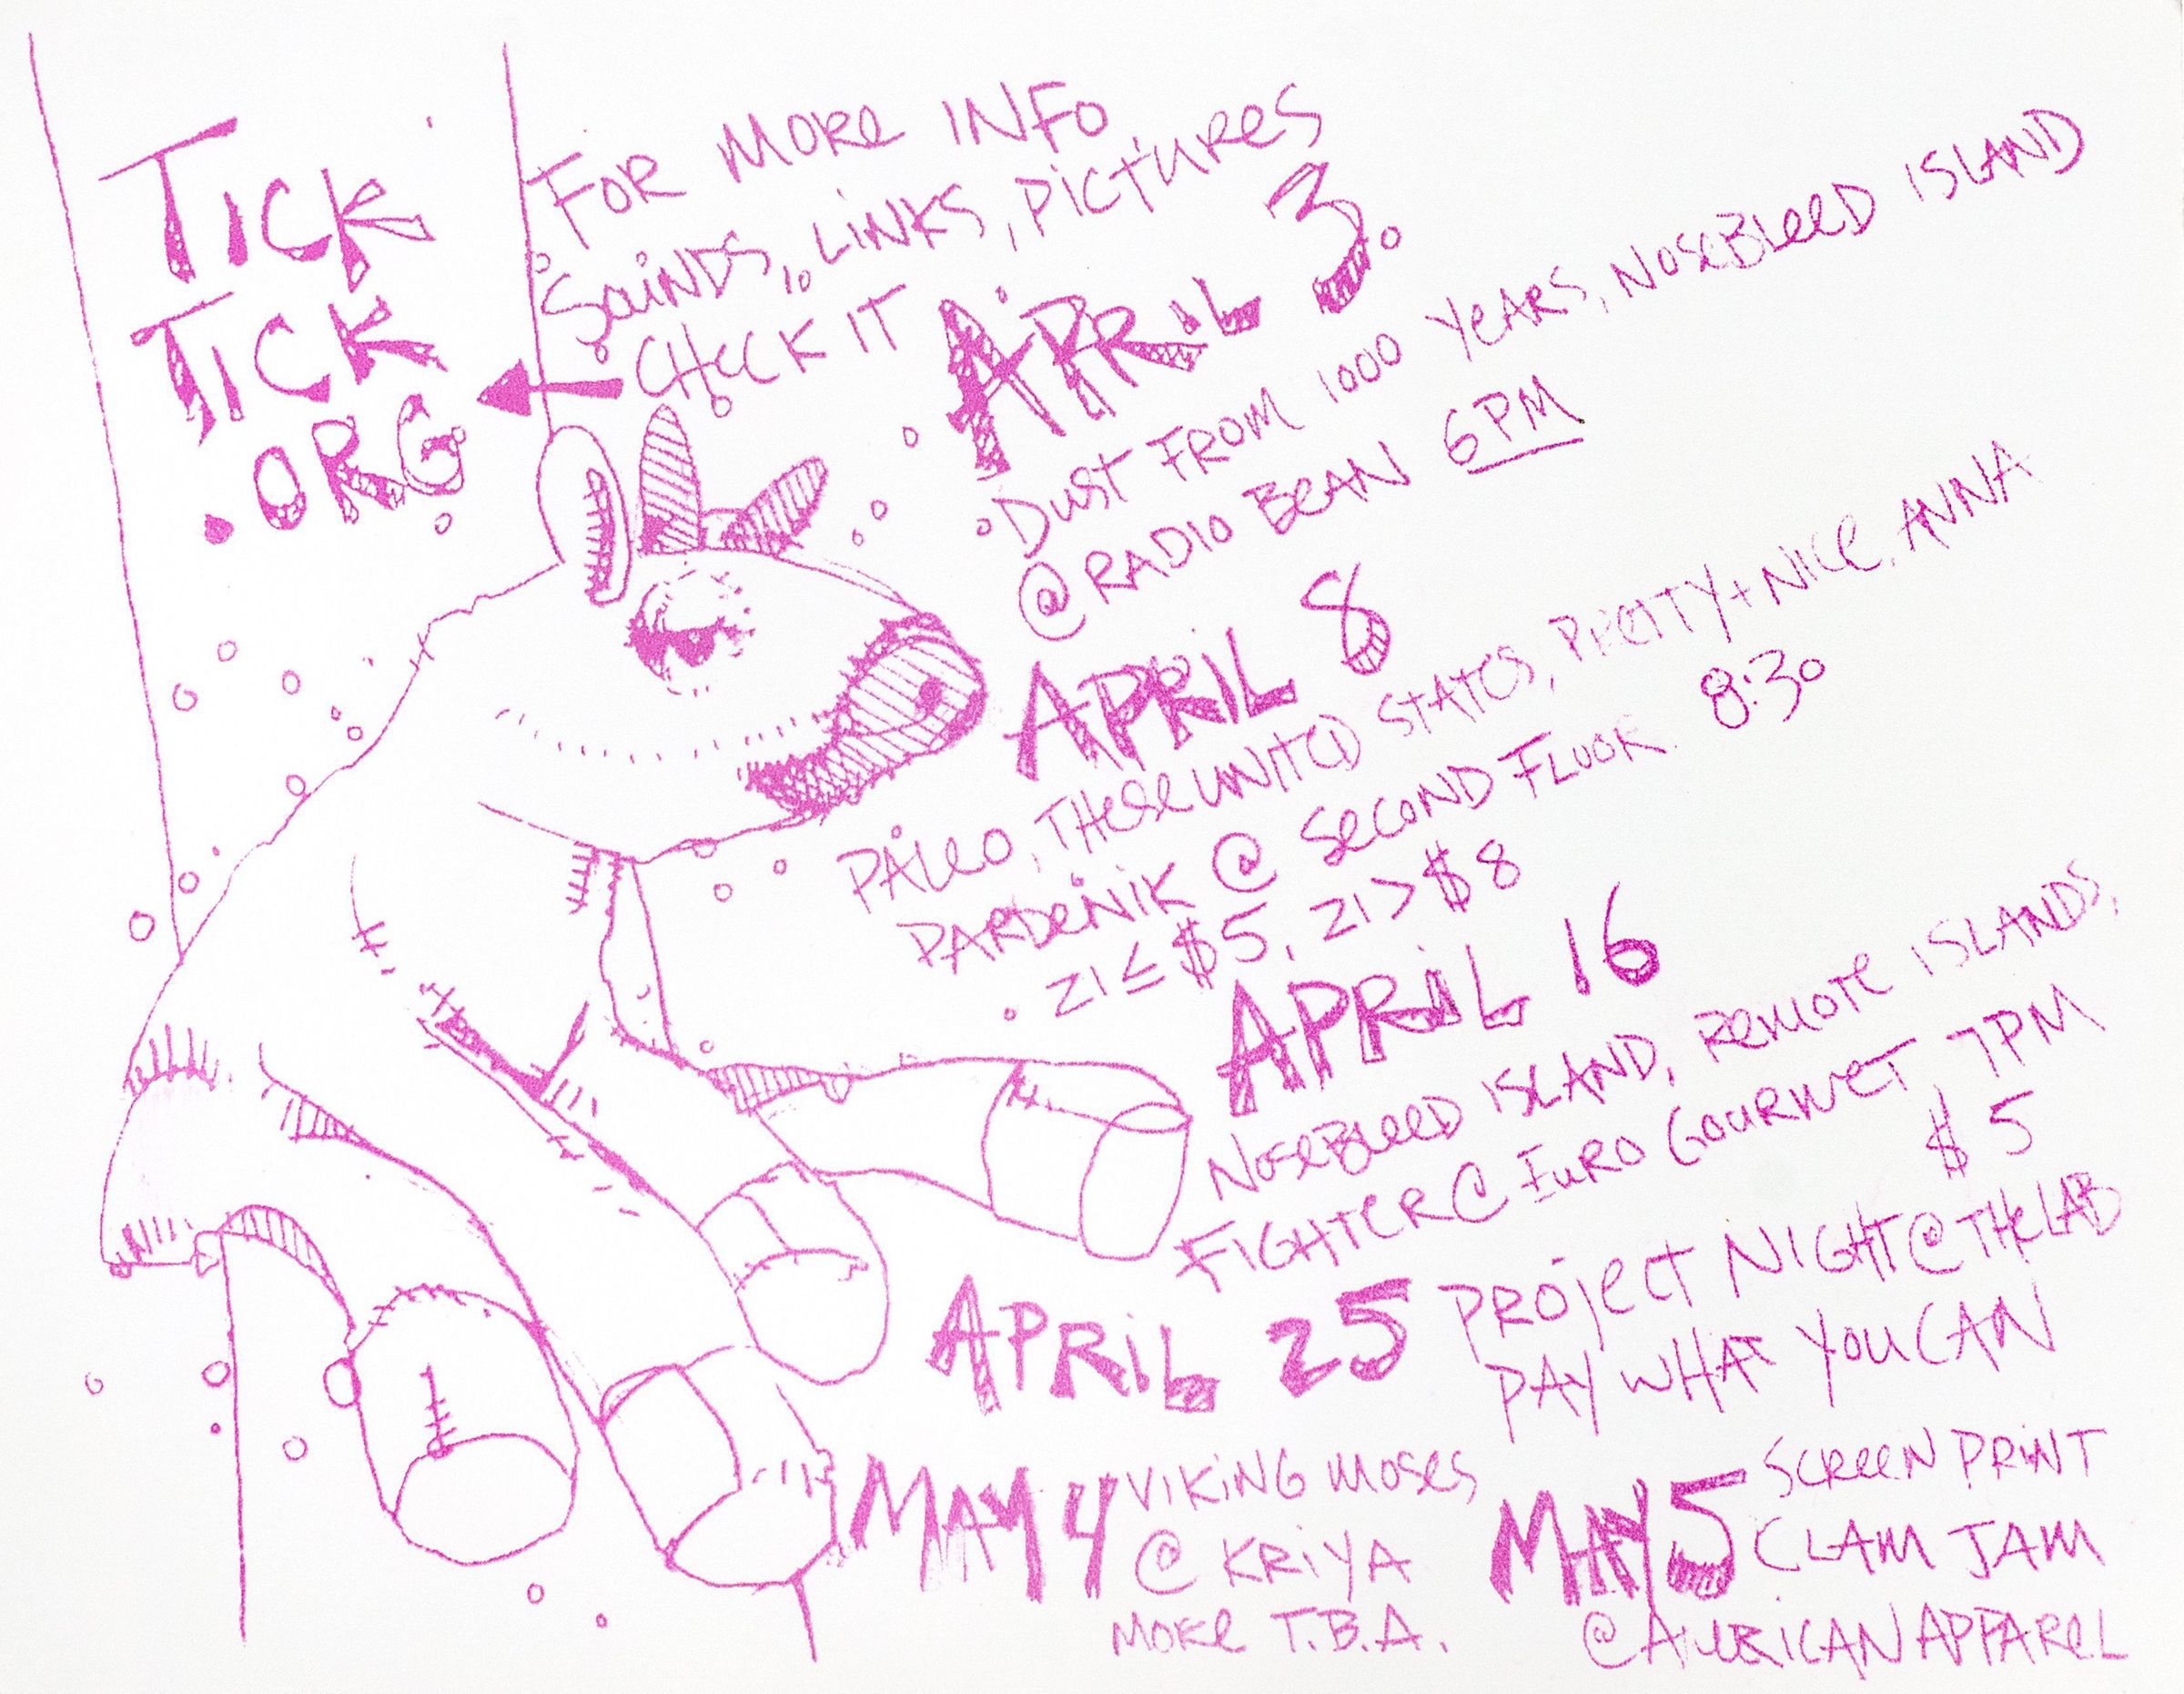 TICK
TICK
.ORG
FOR MORe INFO
SOUNDS, LINKS, PICTUReS
CHeCK IT
APRIL 3
DUST FROM 1000 YeARS, NOSeBLeeD ISLAND
@ RADIO BeAN 6PM
APRiL 8
PALeO, THeSe UNITeD STATeS, PReTTY + NICe, ANNA
PARDeNiK @ SeCOND FLOOR 8:30
21 ≤ $5, 21 > $8
APRiL 16
NOSeBLeeD ISLAND, ReMOTe ISLANDS,
FIGHTeR @ EURO GOURMeT, 7PM
$5
APRiL 25 PROjeCT NIGHT @ THe LAB
PAY WHAT YOU CAN
MAY 4 VIKiNG MOSeS
@ KRiYA
MORe T.B.A.
MAY 5 SCReeN PRiNT
CLAM JAM
@ AMeRiCAN APPAReL